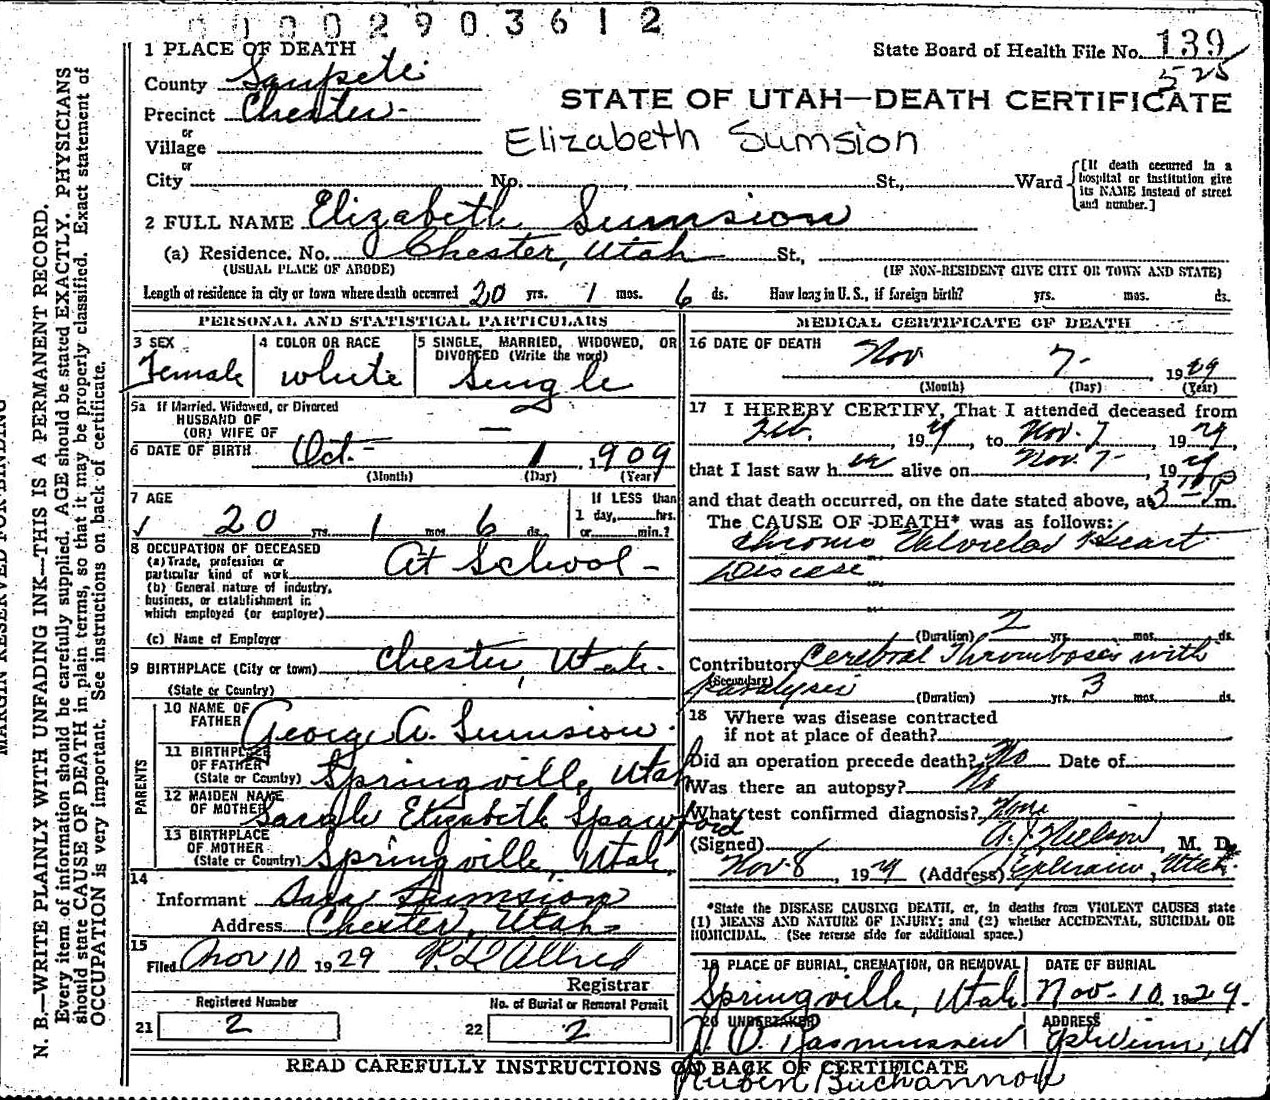 00002903612
1 PLACE OF DEATH
State Board of Health File No. 139
525
County Sanpete
STATE OF UTAH—DEATH CERTIFICATE
Precinct Chester
or
Village
Elizabeth Sumsion
or
City No. St., Ward
[If death occurred in a hospital or institution give its NAME instead of street and number.]
2 FULL NAME Elizabeth Sumsion
(a) Residence. No. Chester, Utah St.,
(USUAL PLACE OF ABODE) (IF NON-RESIDENT GIVE CITY OR TOWN AND STATE)
Length of residence in city or town where death occurred 20 yrs. 1 mos. 6 ds. How long in U. S., if foreign birth? yrs. mos. ds.
PERSONAL AND STATISTICAL PARTICULARS
3 SEX Female
4 COLOR OR RACE white
5 SINGLE, MARRIED, WIDOWED, OR DIVORCED (Write the word) Single
5a If Married, Widowed, or Divorced
HUSBAND OF
(OR) WIFE OF —
6 DATE OF BIRTH Oct- 1, 1909
(Month) (Day) (Year)
7 AGE
20 yrs. 1 mos. 6 ds.
If LESS than
1 day, hrs.
or min.?
8 OCCUPATION OF DECEASED
(a) Trade, profession or
particular kind of work At School -
(b) General nature of industry,
business, or establishment in
which employed (or employer)
(c) Name of Employer
9 BIRTHPLACE (City or town) Chester, Utah.
(State or Country)
PARENTS
10 NAME OF
FATHER George A. Sumsion.
11 BIRTHPLACE
OF FATHER
(State or Country) Springville, Utah
12 MAIDEN NAME
OF MOTHER Sarah Elizabeth Spawfford
13 BIRTHPLACE
OF MOTHER
(State or Country) Springville, Utah.
14
Informant Sumsion
Address Chester, Utah
15
Filed Nov 10 1929 Allred
Registrar
Registered Number No. of Burial or Removal Permit
21 2 22 2
MEDICAL CERTIFICATE OF DEATH
16 DATE OF DEATH Nov 7- 1929
(Month) (Day) (Year)
17 I HEREBY CERTIFY, That I attended deceased from
Feb. , 1929, to Nov. 7 , 1929,
that I last saw her alive on Nov. 7- , 1929
and that death occurred, on the date stated above, at 3 P m.
The CAUSE OF DEATH* was as follows:
Chronic Valvular Heart
Disease
(Duration) 2 yrs. mos. ds.
Contributory Cerebral Thrombosis with
(Secondary) paralysis (Duration) yrs. 3 mos. ds.
18 Where was disease contracted
if not at place of death?
Did an operation precede death? No Date of
Was there an autopsy? No
What test confirmed diagnosis? None
(Signed) Nielson, M. D.
Nov-8, 1929 (Address) Ephraim, Utah.
*State the DISEASE CAUSING DEATH, or, in deaths from VIOLENT CAUSES state
(1) MEANS AND NATURE OF INJURY; and (2) whether ACCIDENTAL, SUICIDAL OR
HOMICIDAL. (See reverse side for additional space.)
19 PLACE OF BURIAL, CREMATION, OR REMOVAL DATE OF BURIAL
Springville, Utah Nov. 10, 1929.
20 UNDERTAKER ADDRESS
Rasmussen Ephraim, U
READ CAREFULLY INSTRUCTIONS ON BACK OF CERTIFICATE
Ruben Buchannon
MARGIN RESERVED FOR BINDING
N. B.—WRITE PLAINLY WITH UNFADING INK—THIS IS A PERMANENT RECORD.
Every item of information should be carefully supplied. AGE should be stated EXACTLY. PHYSICIANS
should state CAUSE OF DEATH in plain terms, so that it may be properly classified. Exact statement of
OCCUPATION is very important. See instructions on back of certificate.